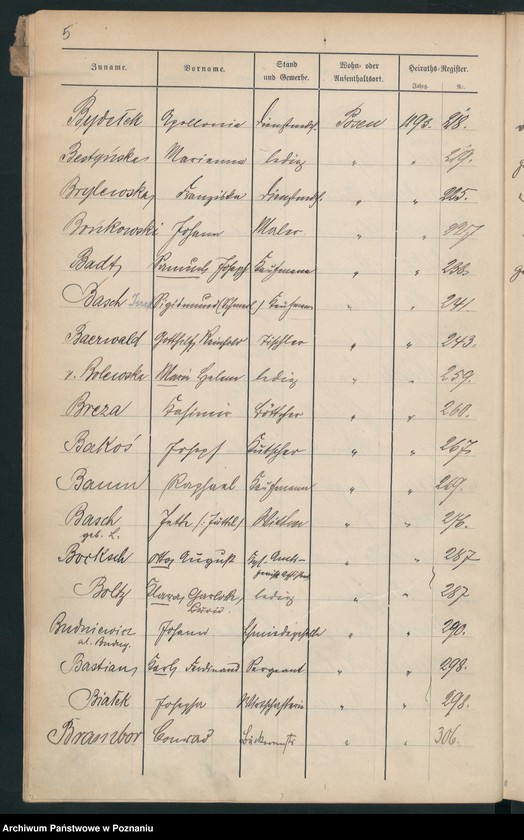 5
Zuname. Vorname. Stand und Gewerbe. Wohn- oder Aufenthaltsort. Heiraths-Register.
Jahrg. Nr.
Bydełek Apollonia Dienstmdch. Posen 1893. 218.
Marianna ledig " " 219.
Brylewska Franziska Dienstmdch. " " 225.
Bońkowski Johann Maler " " 227
Badt Samuel Joseph Kaufmann " " 233.
Basch Sigismund Kaufmann " " 241.
Baerwald Gotthilf Reinhold Tischler " " 243.
v. Bolewska Maria Helene ledig " " 259.
Breza Kasimir Böttcher " " 260.
Bakoś Joseph Kutscher " " 267.
Baum Raphael Kaufmann " " 269.
Basch geb. L. Jette Wittwe " " 276.
Bocksch Otto August " " 287
Boltz Klara, ledig " " 287
Budniewicz Johann Schmiedegeselle " " 290.
Bastian Karl Ferdinand Sergeant " " 298.
Białek Josepha Wirthschafterin " " 298.
Brambor Conrad " " 306.
Archiwum Państwowe w Poznaniu